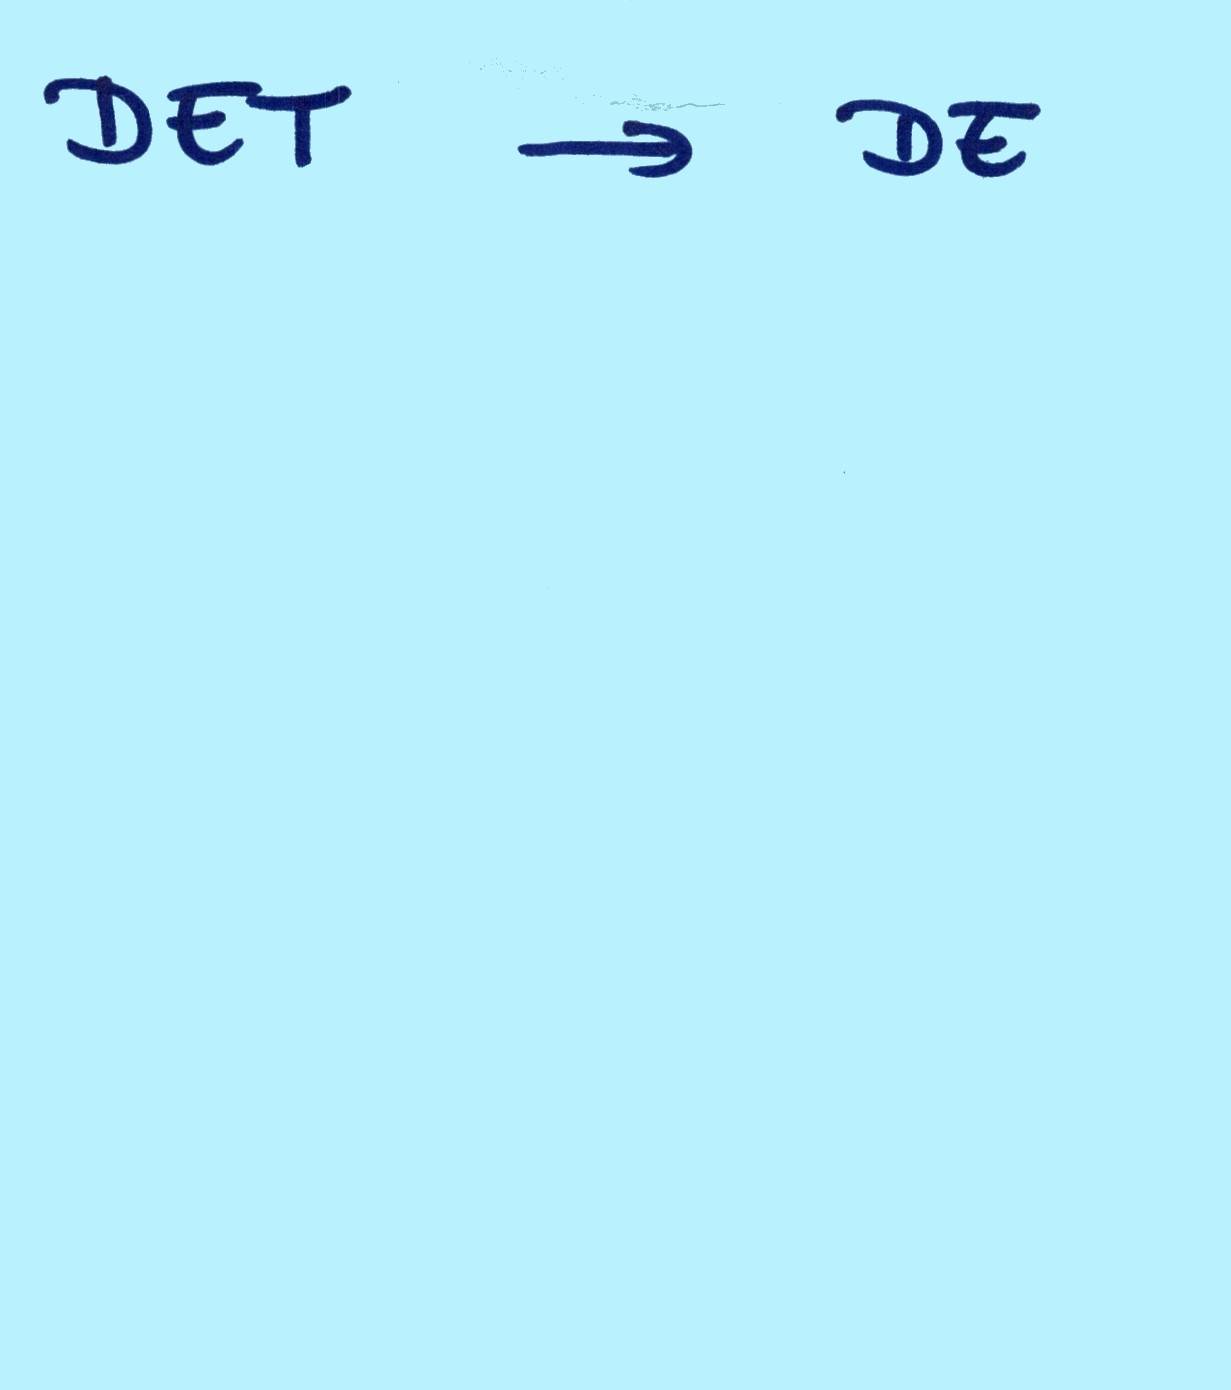 DET → DE